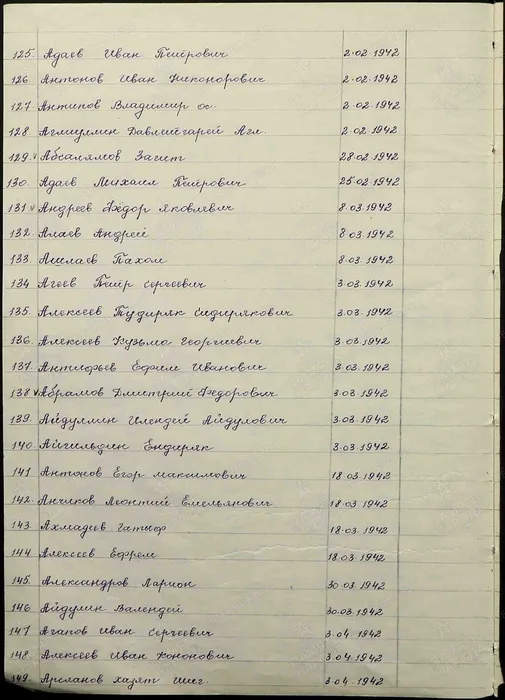 125. Адаев Иван Петрович 2.02.1942
126 Антонов Иван Никонорович 2.02.1942
127 Антипов Владимир ос. 2.02.1942
128 Агмуллин Давлетгарей Агл. 2.02.1942
129.v Абсалямов Загит 28.02.1942
130. Адаев Михаил Петрович 25.02.1942
131 v Андреев Федор Яковлевич 8.03.1942
132. Алаев Андрей 8.03.1942
133 Ашлаев Пахом 8.03.1942
134 Агеев Петр Сергеевич 3.03.1942
135 Алексеев Тудиряк Сидирякович 3.03.1942
136. Алексеев Кузьма Георгиевич 3.03.1942
137. Антифьев Ефрем Иванович 3.03.1942
138 v Абрамов Дмитрий Федорович 3.03.1942
139. Айдуллин Илендей Айдулович 3.03.1942
140 Айгильдин Ендиряк 3.03.1942
141 Антонов Егор Максимович 18.03.1942
142. Анчиков Леонтий Емельянович 18.03.1942
143. Ахмадеев Гатыф 18.03.1942
144 Алексеев Ефрем 18.03.1942
145. Александров Ларион 30.03.1942
146 Айдулин Валендей 30.03.1942
147 Агапов Иван Сергеевич 3.04.1942
148. Алексеев Иван Кононович 3.04.1942
149. Арсланов Хазят Шиг. 3.04.1942